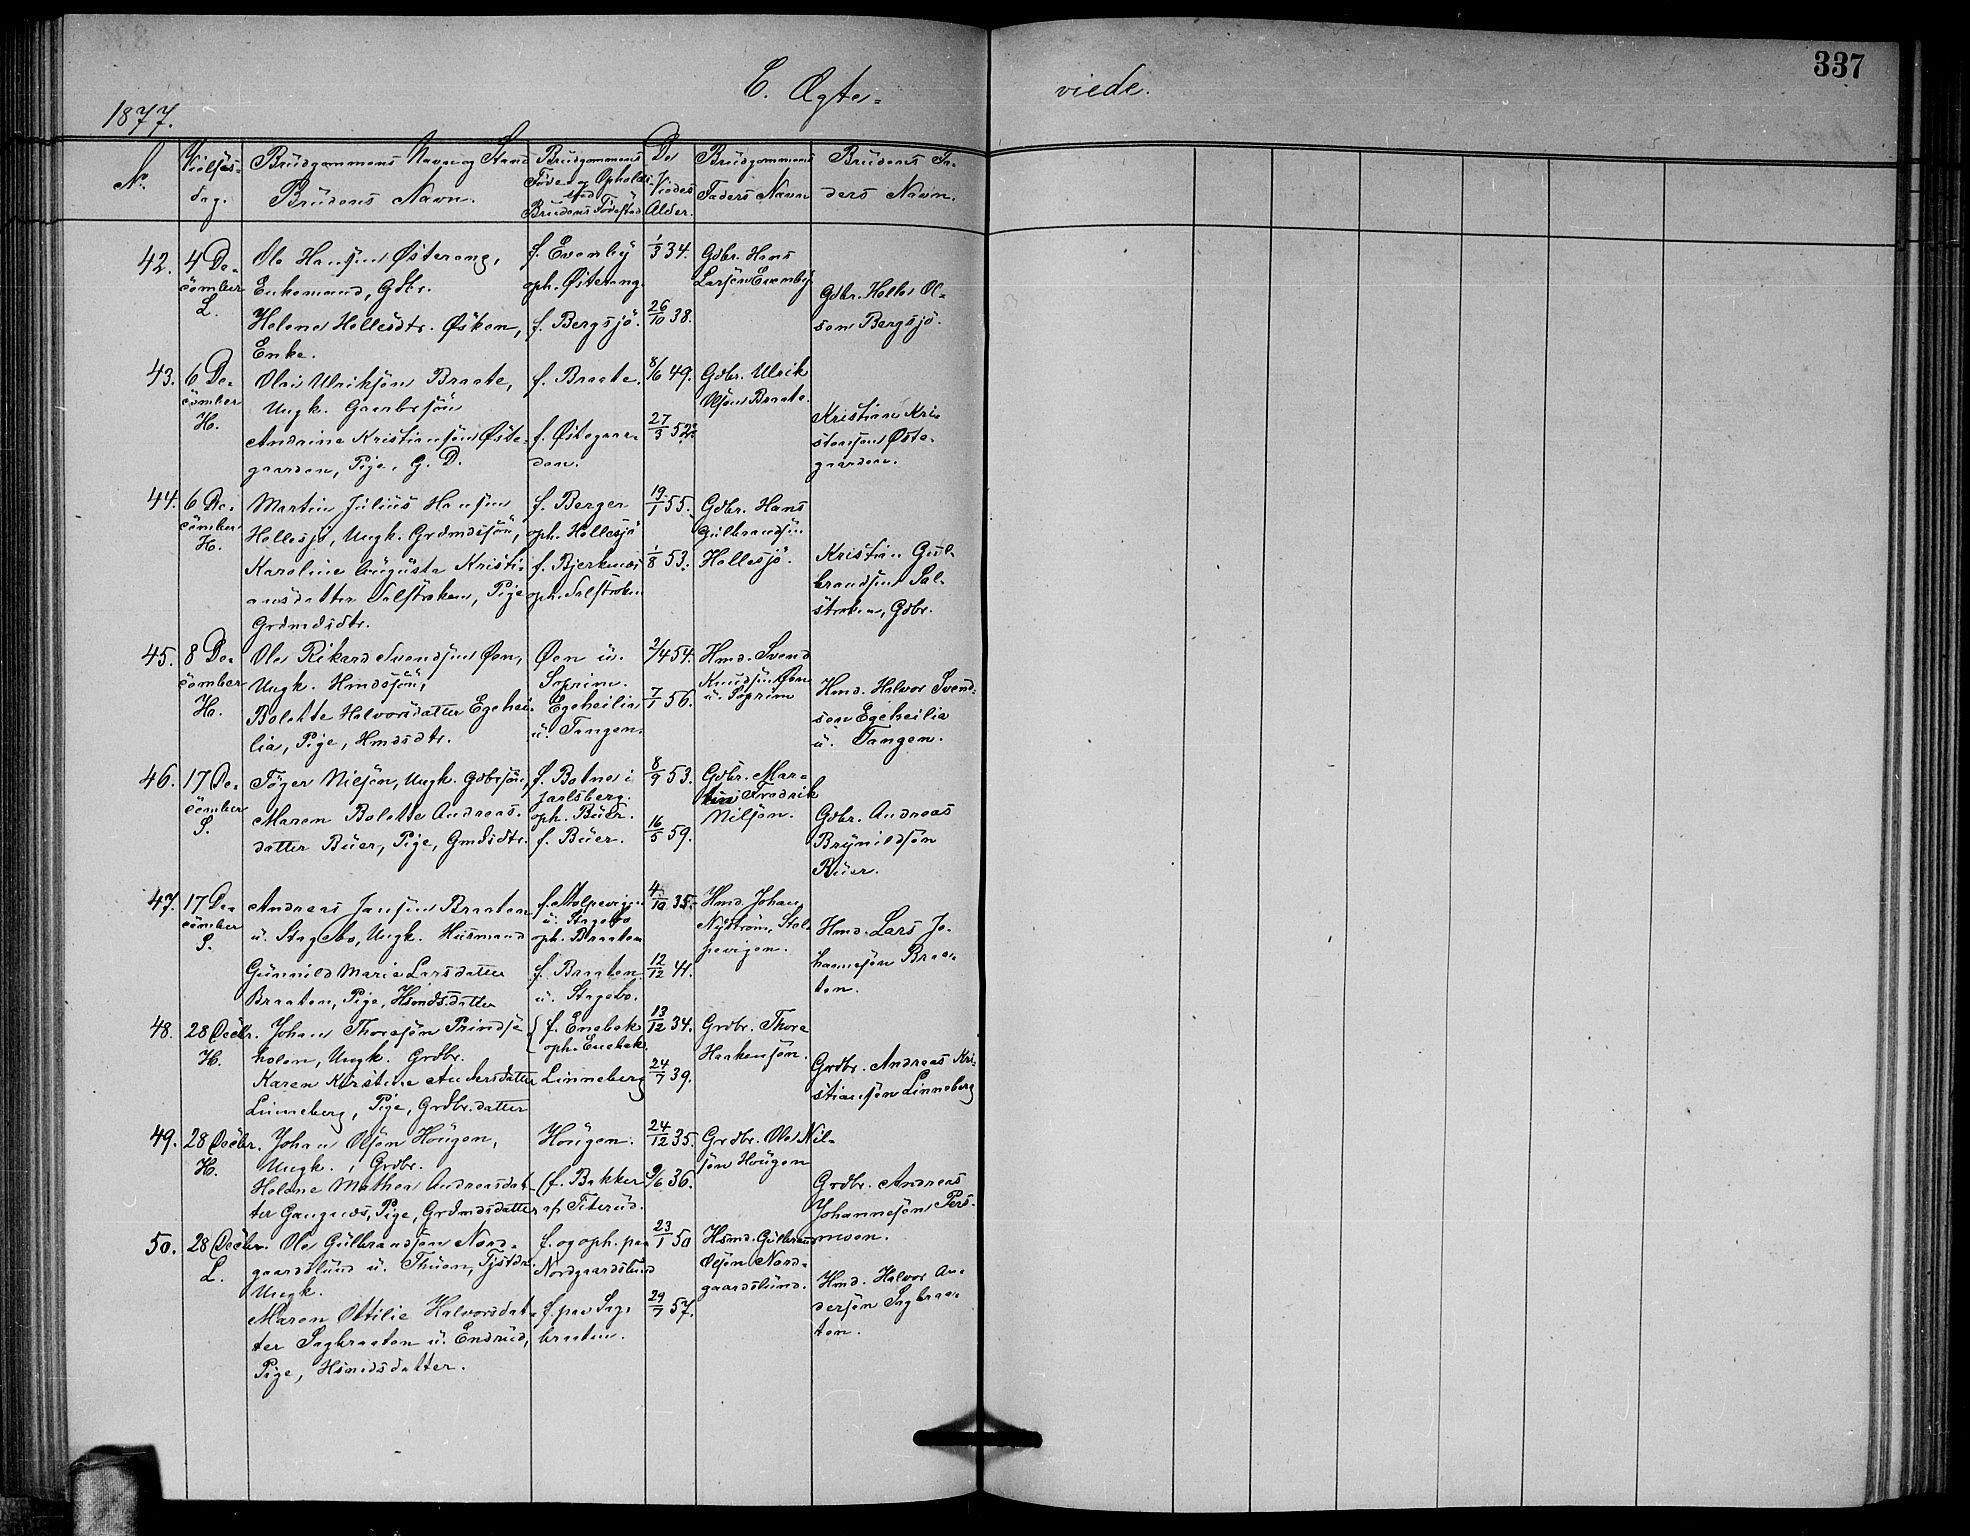 337
1877.
C. Ægte-
viede.
No.
Vielses-
dag.
Brudgommens Navn og Stand
Brudens Navn.
Brudgommens
Føde og Opholds-
sted
Brudens Fødested
De
Viedes
Alder.
Brudgommens
Faders Navn
Brudens Fa-
ders Navn.
42.
4 De-
cember
L.
Ole Hansen Østereng,
Enkemand, Gdbr.
Helene Hellesdtr. Øsken,
Enke.
f. Evenby
oph. Østereng.
f. Bergsjö.
1/3 34.
26/10 38.
Gdbr. Hans
Larsen Evenby
Gdbr. Helle Ol-
sen Bergsjö.
43.
6 De-
cember
H.
Olai Ulriksön Braate,
Ungk. Gaardbrsön
Andrine Kristiansen Øste-
gaarden, Pige, G. D.
f. Braate.
f. Østegaar-
den.
8/6 49.
27/3 52.
Gdbr. Ulrik
Olsön Braate.
Kristian Kri-
stensen Øste-
gaarden.
44.
6 De-
cember
H.
Martin Julius Hansen
Hellesjö, Ungk. Grdmdssön,
Karoline Augusta Kristi-
ansdatter Salstroken, Pige
Grdmdsdtr.
f. Berger
oph. Hellesjö
f. Bjerkenæs
oph. Salstroken
19/1 55.
1/8 53.
Gdbr. Hans
Gulbrandsen
Hellesjö.
Kristian Gul-
brandsen Sal-
stroken, Gdbr.
45.
8 De-
cember
H.
Ole Rikard Svendsen Øen,
Ungk. Hmdssön,
Bolette Halvorsdatter Egehei-
lia, Pige, Hmdsdtr.
Øen u.
Soprim.
Egeheilia
u. Tangen.
2/4 54.
7/1 56.
Hmd. Svend
Knudsen Øen
u. Soprim
Hmd. Halvor Svend-
sen Egeheilia
u. Tangen.
46.
17 De-
cember
S.
Töger Nilsön, Ungk. Gdbrsön,
Maren Bolette Andreas-
datter Buer, Pige, Gmdsdtr.
f. Botne i
Jarlsberg.
oph. Buer.
f. Buer.
8/9 53.
16/5 59.
Gdbr. Mar-
tin Fredrik
Nilsön.
Gdbr. Andreas
Brynildsön
Buer.
47.
17 De-
cember
S.
Andreas Jansen Braaten
u. Stagebo, Ungk. Husmand
Gunnild Marie Larsdatter
Braaten, Pige, Hsmdsdatter
f. Stolpevigen
u. Stagebo
oph. Braaten
f. Braaten
u. Stagebo.
4/10 35.
12/12 41.
Hmd. Johan
Nyström, Stol-
pevigen.
Hmd. Lars Jo-
hannesön Braa-
ten.
48.
28 Decbr.
H.
Johan Thoresön Prindse-
holen, Ungk. Grdbr.
Karen Kirstine Andersdatter
Linneberg, Pige, Grdbr.datter
f. Enebak
oph. Enebak.
Linneberg
13/12 34.
24/7 39.
Grdbr. Thore
Haakensön.
Grdbr. Andreas Kri-
stiansön Linneberg
49.
28 Decbr.
H.
Johan Olsön Hougen,
Ungk., Grdbr.
Helene Mathea Andreasdat-
ter Gangnæs, Pige, Grdmdsdatter
Hougen.
f. Bakker
af Titerud.
24/12 35.
9/6 36.
Grdbr. Ole Nil-
sön Hougen
Grdbr. Andreas
Johannesön Pers-
moen.
50.
28 Decbr.
L.
Ole Gulbrandsön Nord-
gaardslund u. Thuen, Tjstdr.
Ungk.
Maren Ottilie Halvorsdat-
ter Sagbraaten u. Endrud,
Pige, Hsmdsdatter.
f. og oph. paa
Nordgaardslund
f. paa Sag-
braaten.
23/1 50
29/7 57.
Hsmd. Gulbrand
Olsön Nord-
gaardslund.
Hmd. Halvor An-
dersön Sagbraa-
ten.